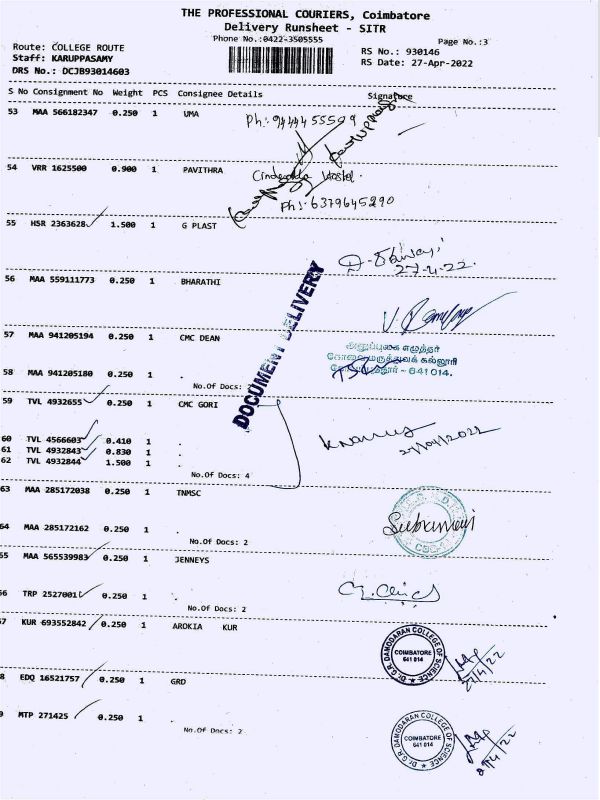 THE PROFESSIONAL COURIERS, Coimbatore
Delivery Runsheet - SITR
Phone No.:0422-3505555
Page No.:3
Route: COLLEGE ROUTE
Staff: KARUPPASAMY
DRS No.: DCJB93014603
RS No.: 930146
RS Date: 27-Apr-2022
S No Consignment No Weight PCS Consignee Details Signature
53 MAA 566182347 0.250 1 UMA
54 VRR 1625500 0.900 1 PAVITHRA
Hostel.
Ph: 6379645290
55 HSR 2363628 1.500 1 G PLAST
27-4-22.
56 MAA 559111773 0.250 1 BHARATHI
DOCUMENT DELIVERY
57 MAA 941205194 0.250 1 CMC DEAN
அனுப்புகை எழுத்தர்
கோவை மருத்துவக் கல்லூரி
- 641 014.
58 MAA 941205180 0.250 1 .
No.Of Docs:
59 TVL 4932655 0.250 1 CMC GORI
27/04/2022
60 TVL 4566603 0.410 1 .
61 TVL 4932843 0.830 1 .
62 TVL 4932844 1.500 1 .
No.Of Docs: 4
63 MAA 285172038 0.250 1 TNMSC
64 MAA 285172162 0.250 1 .
No.Of Docs: 2
65 MAA 565539983 0.250 1 JENNEYS
66 TRP 2527001 0.250 1 .
No.Of Docs: 2
67 KUR 693552842 0.250 1 AROKIA KUR
Dr. G.R. DAMODARAN COLLEGE OF SCIENCE
COIMBATORE
641 014
27/4/22
8 EDQ 16521757 0.250 1 GRD
9 MTP 271425 0.250 1 .
No.Of Docs: 2
Dr. G.R. DAMODARAN COLLEGE OF SCIENCE
COIMBATORE
641 014